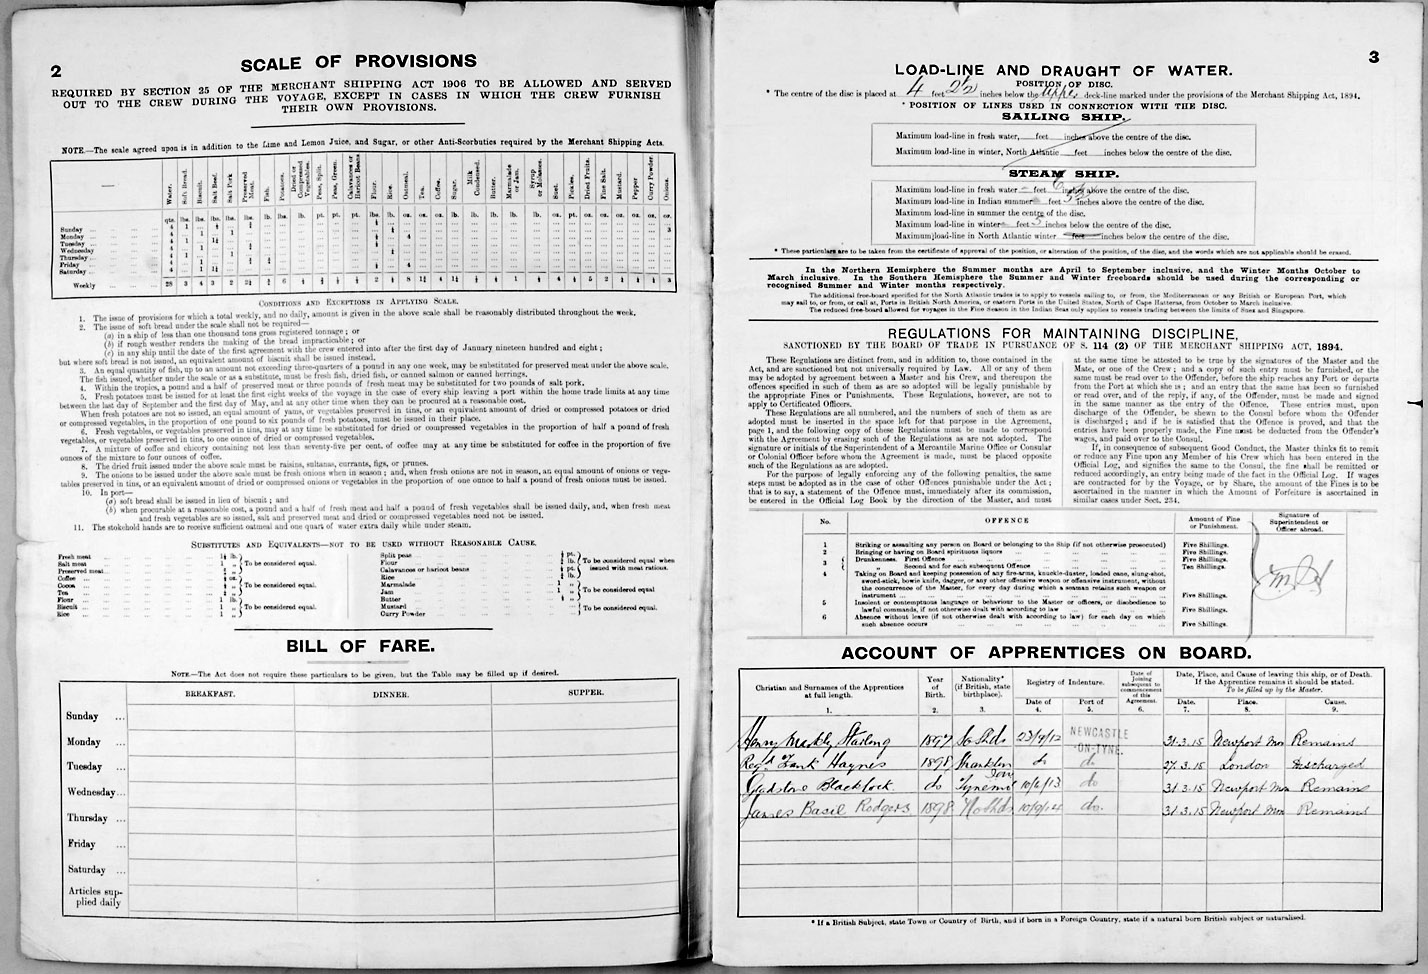 2
SCALE OF PROVISIONS
REQUIRED BY SECTION 25 OF THE MERCHANT SHIPPING ACT 1906 TO BE ALLOWED AND SERVED
OUT TO THE CREW DURING THE VOYAGE, EXCEPT IN CASES IN WHICH THE CREW FURNISH
THEIR OWN PROVISIONS.
NOTE.—The scale agreed upon is in addition to the Lime and Lemon Juice, and Sugar, or other Anti-Scorbutics required by the Merchant Shipping Acts.
Water. Soft Bread. Biscuit. Salt Beef. Salt Pork Preserved Meat. Fish. Potatoes. Dried or Compressed Vegetables. Peas, Split. Peas, Green. Calavances or Haricot Beans Flour. Rice. Oatmeal. Tea. Coffee. Sugar. Milk Condensed. Butter. Marmalade or Jam. Syrup or Molasses. Suet. Pickles. Dried Fruits. Fine Salt. Mustard. Pepper Curry Powder. Onions.
Sunday
Monday
Tuesday
Wednesday
Thursday
Friday
Saturday
Weekly
CONDITIONS AND EXCEPTIONS IN APPLYING SCALE.
1. The issue of provisions for which a total weekly, and no daily, amount is given in the above scale shall be reasonably distributed throughout the week.
2. The issue of soft bread under the scale shall not be required—
(a) in a ship of less than one thousand tons gross registered tonnage; or
(b) if rough weather renders the making of the bread impracticable; or
(c) in any ship until the date of the first agreement with the crew entered into after the first day of January nineteen hundred and eight;
but where soft bread is not issued, an equivalent amount of biscuit shall be issued instead.
3. An equal quantity of fish, up to an amount not exceeding three-quarters of a pound in any one week, may be substituted for preserved meat under the above scale.
The fish issued, whether under the scale or as a substitute, must be fresh fish, dried fish, or canned salmon or canned herrings.
4. Within the tropics, a pound and a half of preserved meat or three pounds of fresh meat may be substituted for two pounds of salt pork.
5. Fresh potatoes must be issued for at least the first eight weeks of the voyage in the case of every ship leaving a port within the home trade limits at any time
between the last day of September and the first day of May, and at any other time when they can be procured at a reasonable cost.
When fresh potatoes are not so issued, an equal amount of yams, or vegetables preserved in tins, or an equivalent amount of dried or compressed potatoes or dried
or compressed vegetables, in the proportion of one pound to six pounds of fresh potatoes, must be issued in their place.
6. Fresh vegetables, or vegetables preserved in tins, may at any time be substituted for dried or compressed vegetables in the proportion of half a pound of fresh
vegetables, or vegetables preserved in tins, to one ounce of dried or compressed vegetables.
7. A mixture of coffee and chicory containing not less than seventy-five per cent. of coffee may at any time be substituted for coffee in the proportion of five
ounces of the mixture to four ounces of coffee.
8. The dried fruit issued under the above scale must be raisins, sultanas, currants, figs, or prunes.
9. The onions to be issued under the above scale must be fresh onions when in season; and, when fresh onions are not in season, an equal amount of onions or vege-
tables preserved in tins, or an equivalent amount of dried or compressed onions or vegetables in the proportion of one ounce to half a pound of fresh onions must be issued.
10. In port—
(a) soft bread shall be issued in lieu of biscuit; and
(b) when procurable at a reasonable cost, a pound and a half of fresh meat and half a pound of fresh vegetables shall be issued daily, and, when fresh meat
and fresh vegetables are so issued, salt and preserved meat and dried or compressed vegetables need not be issued.
11. The stokehold hands are to receive sufficient oatmeal and one quart of water extra daily while under steam.
SUBSTITUTES AND EQUIVALENTS—NOT TO BE USED WITHOUT REASONABLE CAUSE.
Fresh meat
Salt meat
Preserved meat
To be considered equal.
Coffee
Cocoa
Tea
To be considered equal.
Flour
Biscuit
Rice
To be considered equal.
Split peas
Flour
Calavances or haricot beans
Rice
To be considered equal when issued with meat rations.
Marmalade
Jam
Butter
To be considered equal
Mustard
Curry Powder
To be considered equal.
BILL OF FARE.
NOTE.—The Act does not require these particulars to be given, but the Table may be filled up if desired.
BREAKFAST. DINNER. SUPPER.
Sunday
Monday
Tuesday
Wednesday
Thursday
Friday
Saturday
Articles sup-
plied daily
3
LOAD-LINE AND DRAUGHT OF WATER.
POSITION OF DISC.
* The centre of the disc is placed at 4 feet inches below the upper deck-line marked under the provisions of the Merchant Shipping Act, 1894.
* POSITION OF LINES USED IN CONNECTION WITH THE DISC.
SAILING SHIP.
Maximum load-line in fresh water, feet inches above the centre of the disc.
Maximum load-line in winter, North Atlantic feet inches below the centre of the disc.
STEAM SHIP.
Maximum load-line in fresh water – feet 6 inches above the centre of the disc.
Maximum load-line in Indian summer feet inches above the centre of the disc.
Maximum load-line in summer the centre of the disc.
Maximum load-line in winter feet 5 inches below the centre of the disc.
Maximum load-line in North Atlantic winter feet inches below the centre of the disc.
* These particulars are to be taken from the certificate of approval of the position, or alteration of the position, of the disc, and the words which are not applicable should be erased.
In the Northern Hemisphere the Summer months are April to September inclusive, and the Winter Months October to
March inclusive. In the Southern Hemisphere the Summer and Winter freeboards should be used during the corresponding or
recognised Summer and Winter months respectively.
The additional free-board specified for the North Atlantic trades is to apply to vessels sailing to, or from, the Mediterranean or any British or European Port, which
may sail to, or from, or call at, Ports in British North America, or eastern Ports in the United States, North of Cape Hatteras, from October to March inclusive.
The reduced free-board allowed for voyages in the Fine Season in the Indian Seas only applies to vessels trading between the limits of Suez and Singapore.
REGULATIONS FOR MAINTAINING DISCIPLINE,
SANCTIONED BY THE BOARD OF TRADE IN PURSUANCE OF S. 114 (2) OF THE MERCHANT SHIPPING ACT, 1894.
These Regulations are distinct from, and in addition to, those contained in the
Act, and are sanctioned but not universally required by Law. All or any of them
may be adopted by agreement between a Master and his Crew, and thereupon the
offences specified in such of them as are so adopted will be legally punishable by
the appropriate Fines or Punishments. These Regulations, however, are not to
apply to Certificated Officers.
These Regulations are all numbered, and the numbers of such of them as are
adopted must be inserted in the space left for that purpose in the Agreement,
page 1, and the following copy of these Regulations must be made to correspond
with the Agreement by erasing such of the Regulations as are not adopted. The
signature or initials of the Superintendent of a Mercantile Marine Office or Consular
or Colonial Officer before whom the Agreement is made, must be placed opposite
such of the Regulations as are adopted.
For the purpose of legally enforcing any of the following penalties, the same
steps must be adopted as in the case of other Offences punishable under the Act;
that is to say, a statement of the Offence must, immediately after its commission,
be entered in the Official Log Book by the direction of the Master, and must
at the same time be attested to be true by the signatures of the Master and the
Mate, or one of the Crew; and a copy of such entry must be furnished, or the
same must be read over to the Offender, before the ship reaches any Port or departs
from the Port at which she is; and an entry that the same has been so furnished
or read over, and of the reply, if any, of the Offender, must be made and signed
in the same manner as the entry of the Offence. These entries must, upon
discharge of the Offender, be shewn to the Consul before whom the Offender
is discharged; and if he is satisfied that the Offence is proved, and that the
entries have been properly made, the Fine must be deducted from the Offender's
wages, and paid over to the Consul.
If, in consequence of subsequent Good Conduct, the Master thinks fit to remit
or reduce any Fine upon any Member of his Crew which has been entered in the
Official Log, and signifies the same to the Consul, the fine shall be remitted or
reduced accordingly, an entry being made of the fact in the Official Log. If wages
are contracted for by the Voyage, or by Share, the amount of the Fines is to be
ascertained in the manner in which the Amount of Forfeiture is ascertained in
similar cases under Sect. 234.
No. OFFENCE Amount of Fine or Punishment. Signature of Superintendent or Officer abroad.
1 Striking or assaulting any person on Board or belonging to the Ship (if not otherwise prosecuted) Five Shillings.
2 Bringing or having on Board spirituous liquors Five Shillings.
3 Drunkenness. First Offence Five Shillings.
„ Second and for each subsequent Offence Ten Shillings.
4 Taking on Board and keeping possession of any fire-arms, knuckle-duster, loaded cane, slung-shot,
sword-stick, bowie knife, dagger, or any other offensive weapon or offensive instrument, without
the concurrence of the Master, for every day during which a seaman retains such weapon or
instrument Five Shillings.
5 Insolent or contemptuous language or behaviour to the Master or officers, or disobedience to
lawful commands, if not otherwise dealt with according to law Five Shillings.
6 Absence without leave (if not otherwise dealt with according to law) for each day on which
such absence occurs Five Shillings.
ACCOUNT OF APPRENTICES ON BOARD.
Christian and Surnames of the Apprentices at full length. Year of Birth. Nationality* (if British, state birthplace). Registry of Indenture. Date of Joining subsequent to commencement of this Agreement. Date, Place, and Cause of leaving this ship, or of Death.
If the Apprentice remains it should be stated.
To be filled up by the Master.
Date of Port of Date. Place. Cause.
1. 2. 3. 4. 5. 6. 7. 8. 9.
Henry Starling 1897 So Shds 23/9/12 NEWCASTLE-ON-TYNE. 31.3.15 Newport Mon Remains
Regd Frank Haynes 1898 Shanklin do do 27.3.15 London Discharged
Gladstone Blacklock. do Tynemo 10/6/13 do 31.3.15 Newport Mon Remains
James Basil Rodgers. 1898 No Shds 10/9/14 do. 31.3.15 Newport Mon Remains
* If a British Subject, state Town or Country of Birth, and if born in a Foreign Country, state if a natural born British subject or naturalised.